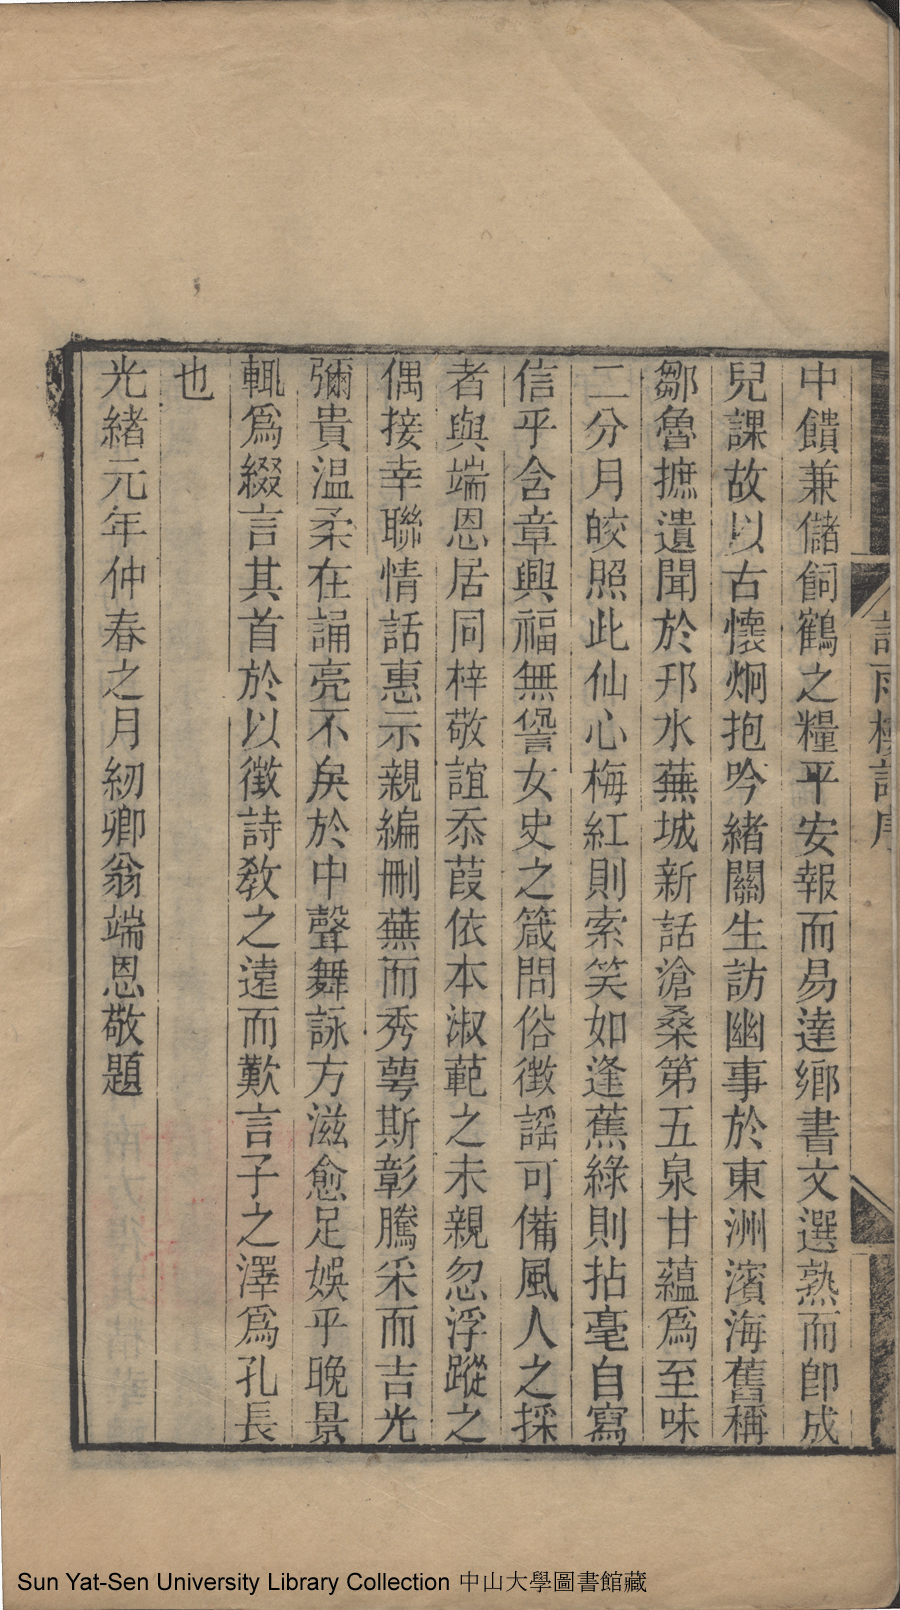 中饋兼儲飼鶴之糧平安報而易達鄉書文選熟而卽成
兒課故以古懷炯抱吟緒關生訪幽事於東洲濱海舊稱
鄒魯摭遺聞於邗水蕪城新話滄桑第五泉甘蘊爲至味
二分月皎照此仙心梅紅則索笑如逢蕉綠則拈毫自寫
信乎含章興福無諐女史之箴問俗徵謠可備風人之採
者與端恩居同梓敬誼忝葭依本淑範之未親忽浮蹤之
偶接幸聯情話惠示親編刪蕪而秀萼斯彰騰采而吉光
彌貴温柔在誦亮不戾於中聲舞詠方滋愈足娛乎晚景
輒爲綴言其首於以徵詩教之遠而歎言子之澤爲孔長
也
光緒元年仲春之月紉卿翁端恩敬題
Sun Yat-Sen University Library Collection 中山大學圖書館藏